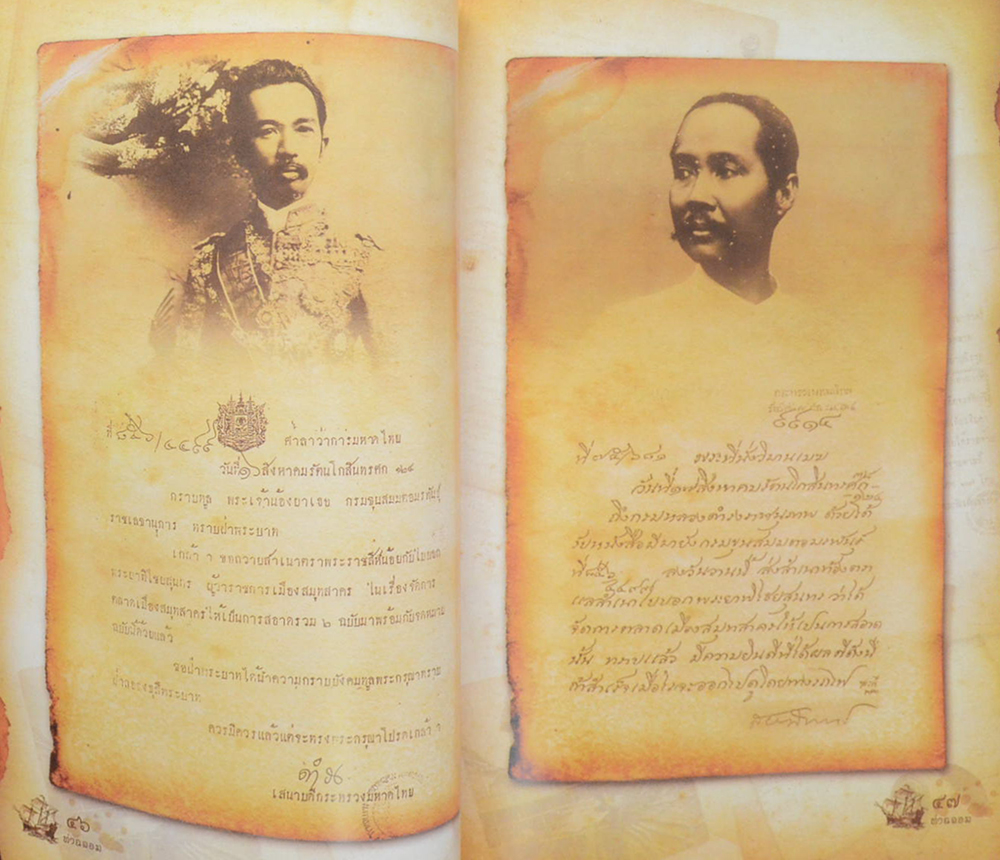 ที่ ๘๕๖/๔๔๙๙
ศาลาว่าการมหาดไทย
วันที่ ๑๖ สิงหาคมรัตนโกสินทรศก ๑๒๔
กราบทูล พระเจ้าน้องยาเธอ กรมขุนสมมตอมรพันธุ์
ราชเลขานุการ ทราบฝ่าพระบาท
เกล้า ฯ ขอถวายสำเนาตราพระราชสีห์น้อยกับใบบอก
พระยาพิไชยสุนทร ผู้ว่าราชการเมืองสมุทสาคร ในเรื่องจัดการ
ตลาดเมืองสมุทสาครให้เป็นการสอาดรวม ๒ ฉบับมาพร้อมกับจดหมาย
ฉบับนี้ด้วยแล้ว
ขอฝ่าพระบาทได้นำความกราบบังคมทูลพระกรุณาทราบ
ฝ่าลอองธุลีพระบาท
ควรมิควรแล้วแต่จะทรงพระกรุณาโปรดเกล้า ฯ
เสนาบดีกระทรวงมหาดไทย
๔๖
ท่าฉลอม
พระที่นั่งวิมานเมฆ
วันที่ ๑๗ สิงหาคมรัตนโกสินทรศก
๑๒๔
ถึงกรมหลวงดำรงราชานุภาพ ด้วยได้
รับหนังสือมีมายังกรมขุนสมมตอมรพันธ์
ที่ ๘๕๖ ลงวันวานนี้ ส่งสำเนาท้องตรา
๔๔๙๙
แลสำเนาใบบอกพระยาพิไชยสุนทร ว่าได้
จัดการตลาดเมืองสมุทสาครให้เป็นการสอาด
นั้น ทราบแล้ว มีความยินดีที่ได้ผลดีดังนี้
ถ้าสำเร็จเมื่อไรจะออกไปดูโดยทางรถไฟ
๔๗
ท่าฉลอม